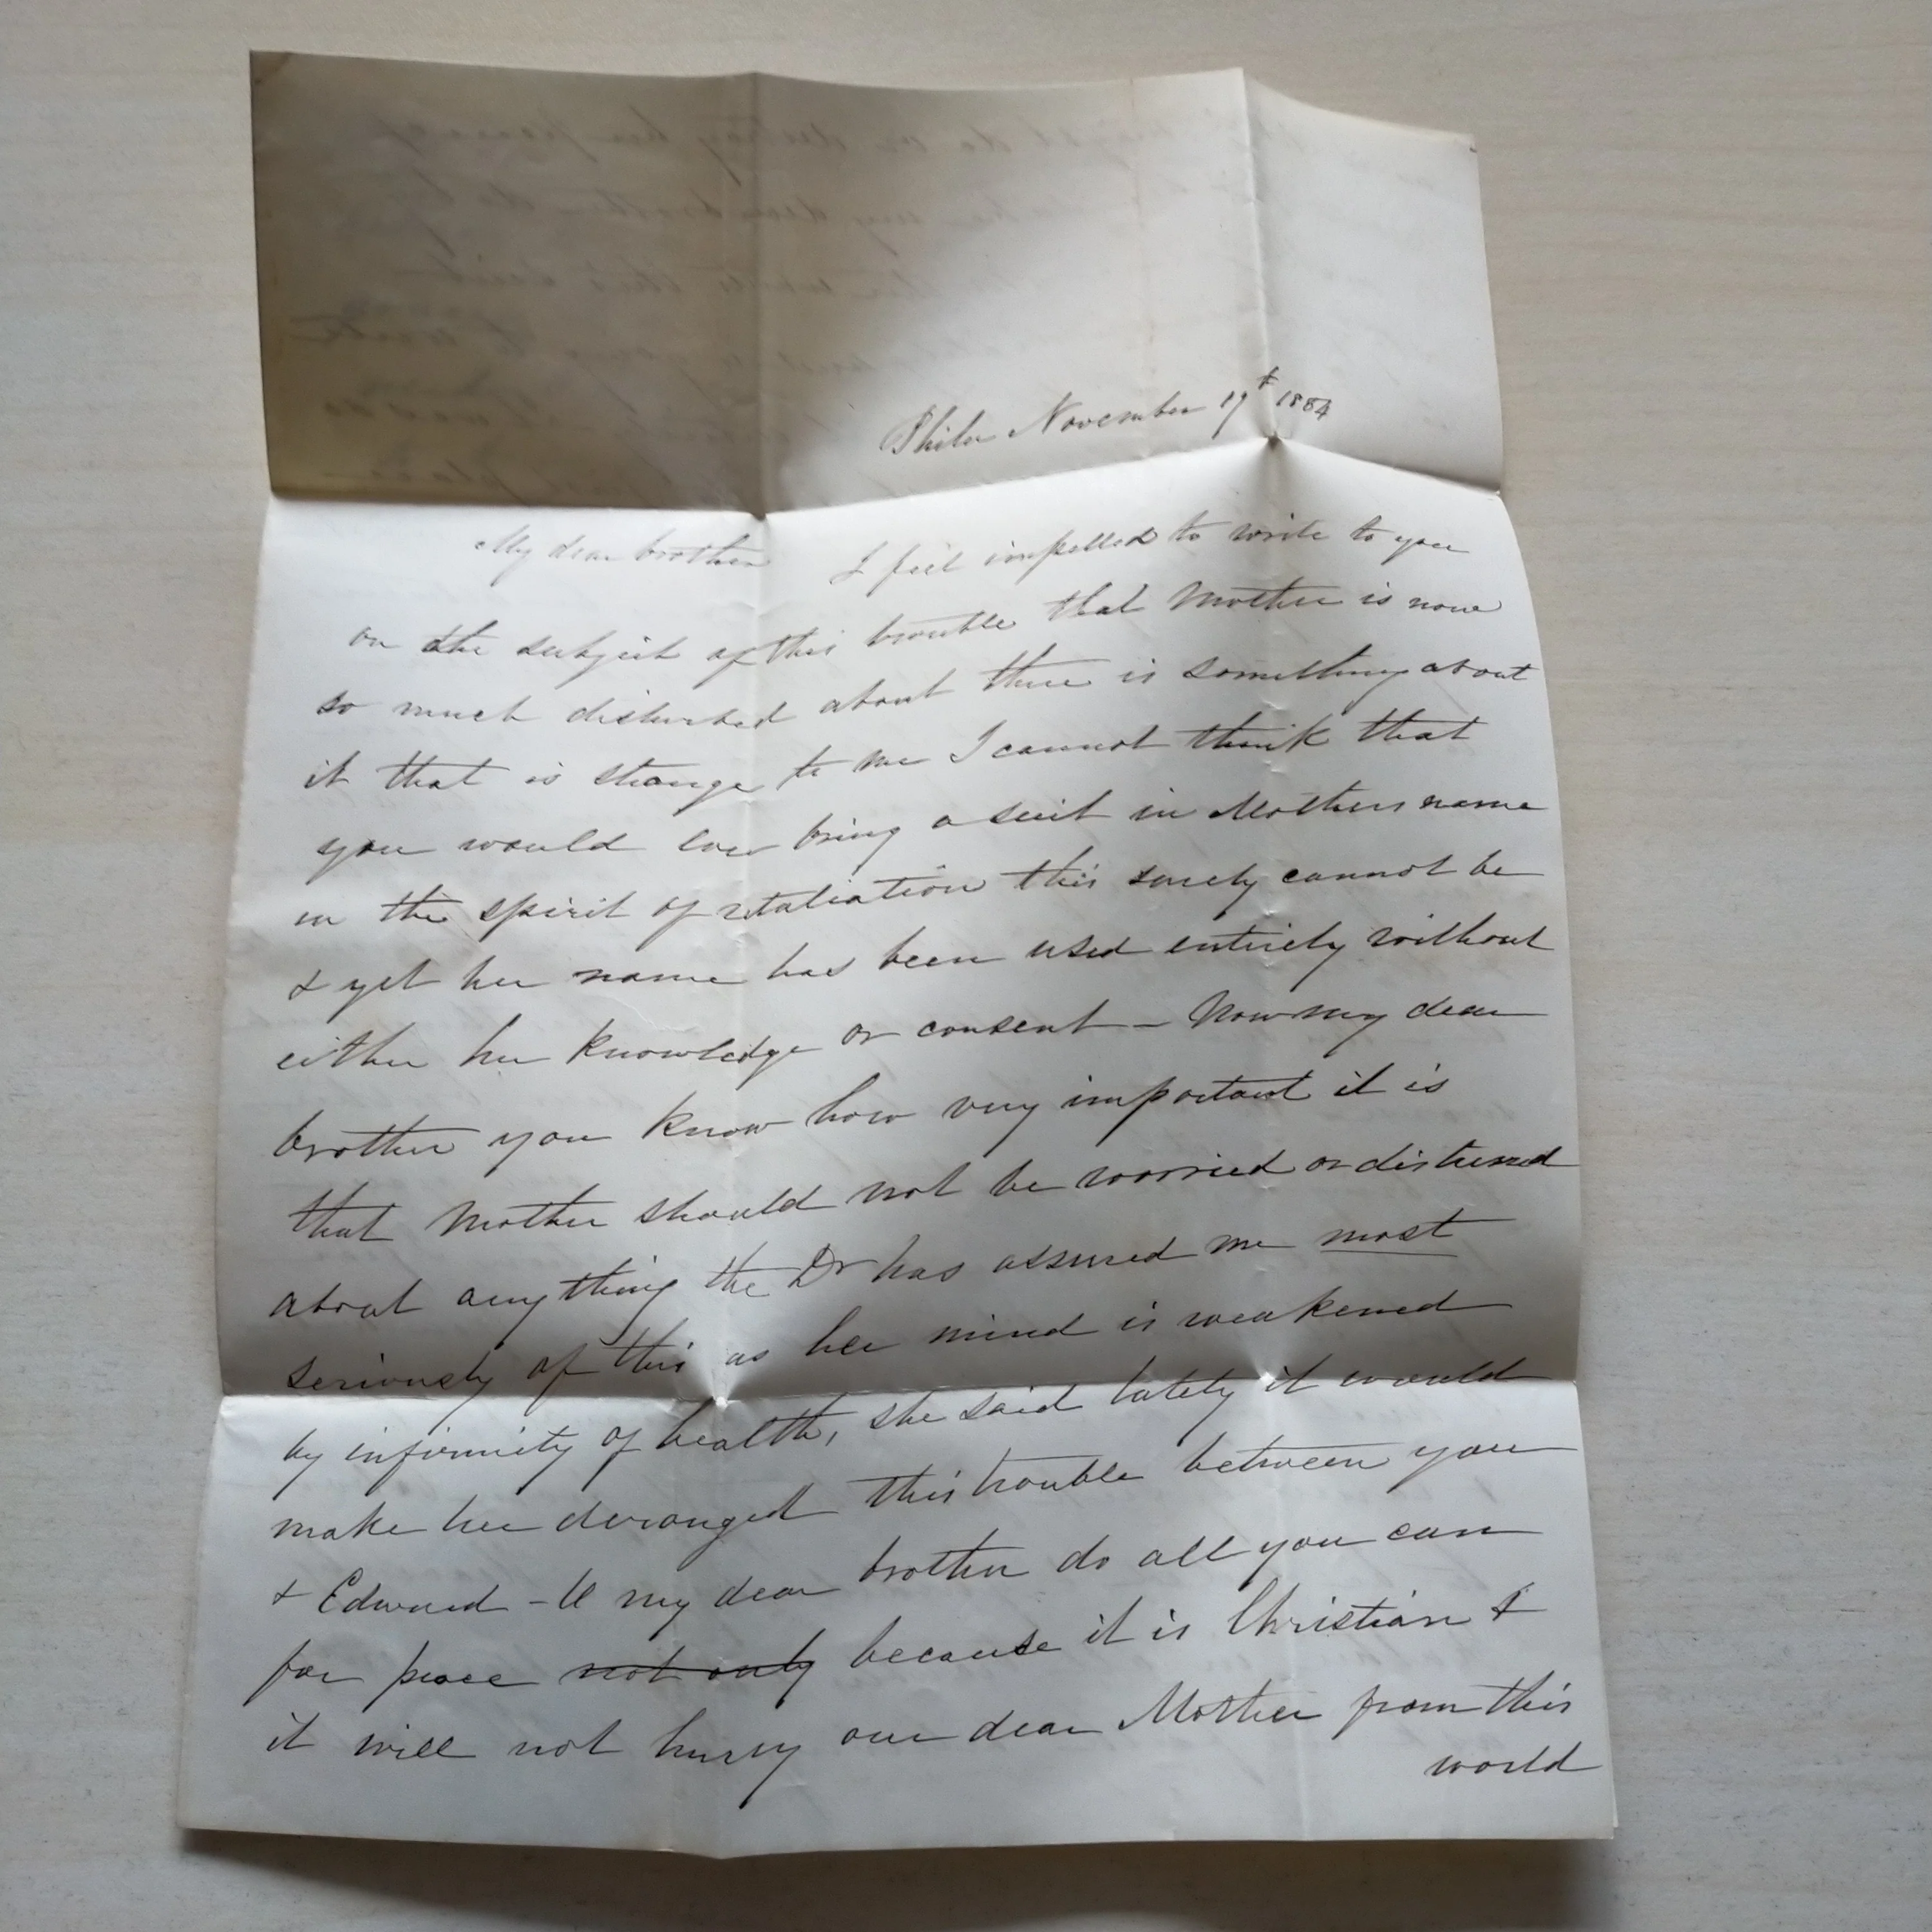 Phila November 19t 1884
My dear brother I feel impelled to write to you
on the subject of this trouble that Mother is now
so much disturbed about there is something about
it that is strange to me I cannot think that
you would ever bring a suit in Mothers name
in the spirit of retaliation this surely cannot be
& yet her name has been used entirely without
either her knowledge or consent - Now my dear
brother you know how very important it is
that Mother should not be worried or distressed
about anything the Dr has assured me most
seriously of this as her mind is weakened
by infirmity of health, she said lately it would
make her deranged this trouble between you
& Edward - O my dear brother do all you can
for peace not only because it is Christian &
it will not hurry our dear Mother from this
world